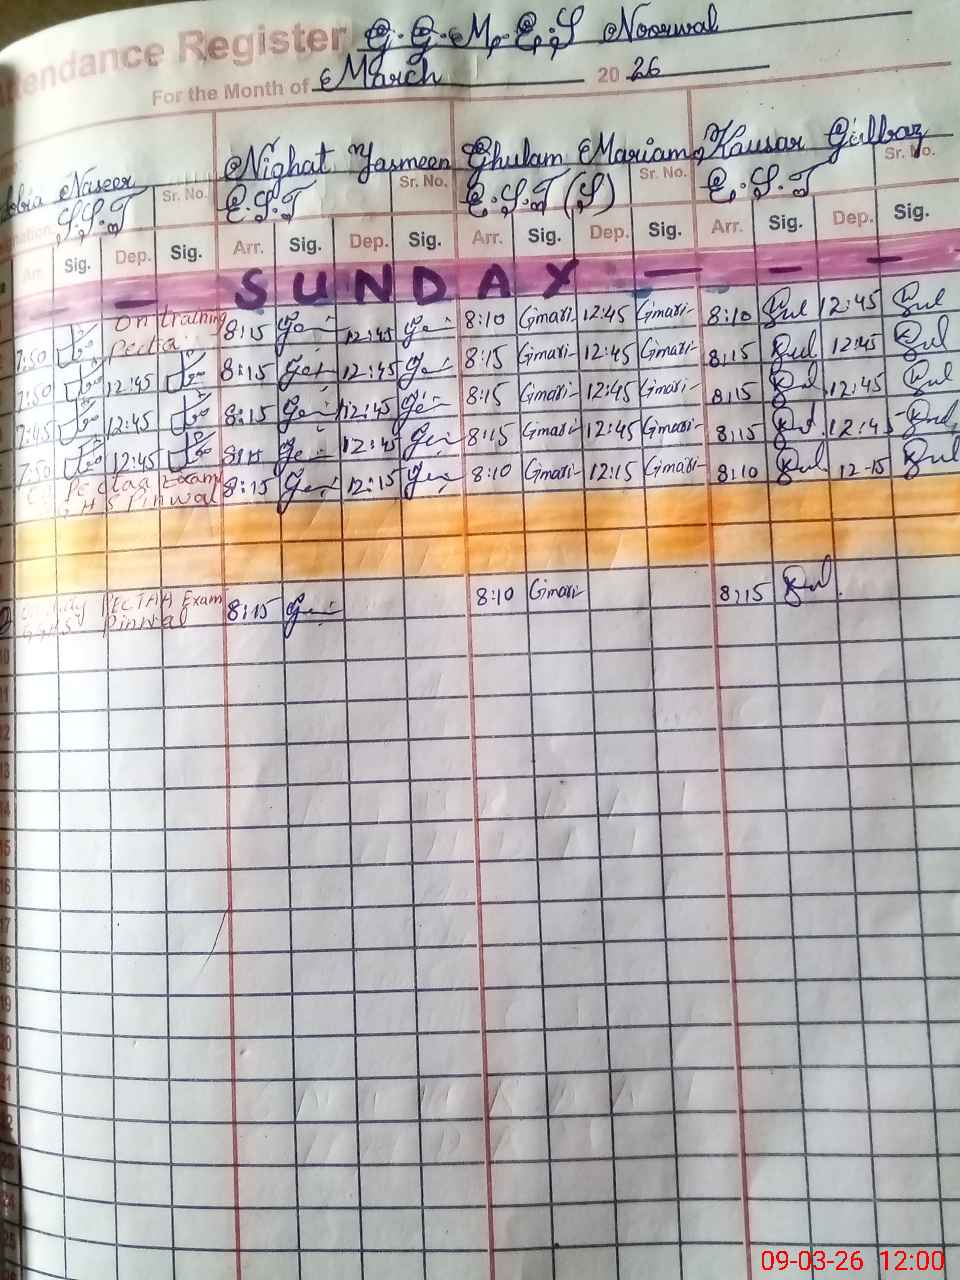 Attendance Register G.G.M.E.S Noorwal
For the Month of March 2026
Naseer Nighat Yasmeen Ghulam Mariam Kausar Gulbaz
Sr. No. Sr. No. Sr. No. Sr. No.
S.S.T E.S.T E.S.T (S) E.S.T
Arr. Sig. Dep. Sig. Arr. Sig. Dep. Sig. Arr. Sig. Dep. Sig. Arr. Sig. Dep. Sig.
— — SUNDAY — — —
7:50 On training Pecta 8:15 12:45 8:10 Gmari- 12:45 Gmari- 8:10 Gul 12:45 Gul
7:50 12:45 8:15 12:45 8:15 Gmari- 12:45 Gmari- 8:15 Gul 12:45 Gul
7:45 12:45 8:15 12:45 8:15 Gmari- 12:45 Gmari- 8:15 Gul 12:45 Gul
7:50 12:45 12:45 8:15 Gmari- 12:45 Gmari- 8:15 Gul 12:45 Gul
Exam Pinwal 8:15 12:15 8:10 Gmari- 12:15 Gmari- 8:10 Gul 12-15 Gul
PECTAA Exam 8:15 8:10 Gmari- 8:15 Gul
GHS Pinwal
10
11
12
13
14
15
16
17
18
19
20
21
22
23
24
25
09-03-26 12:00